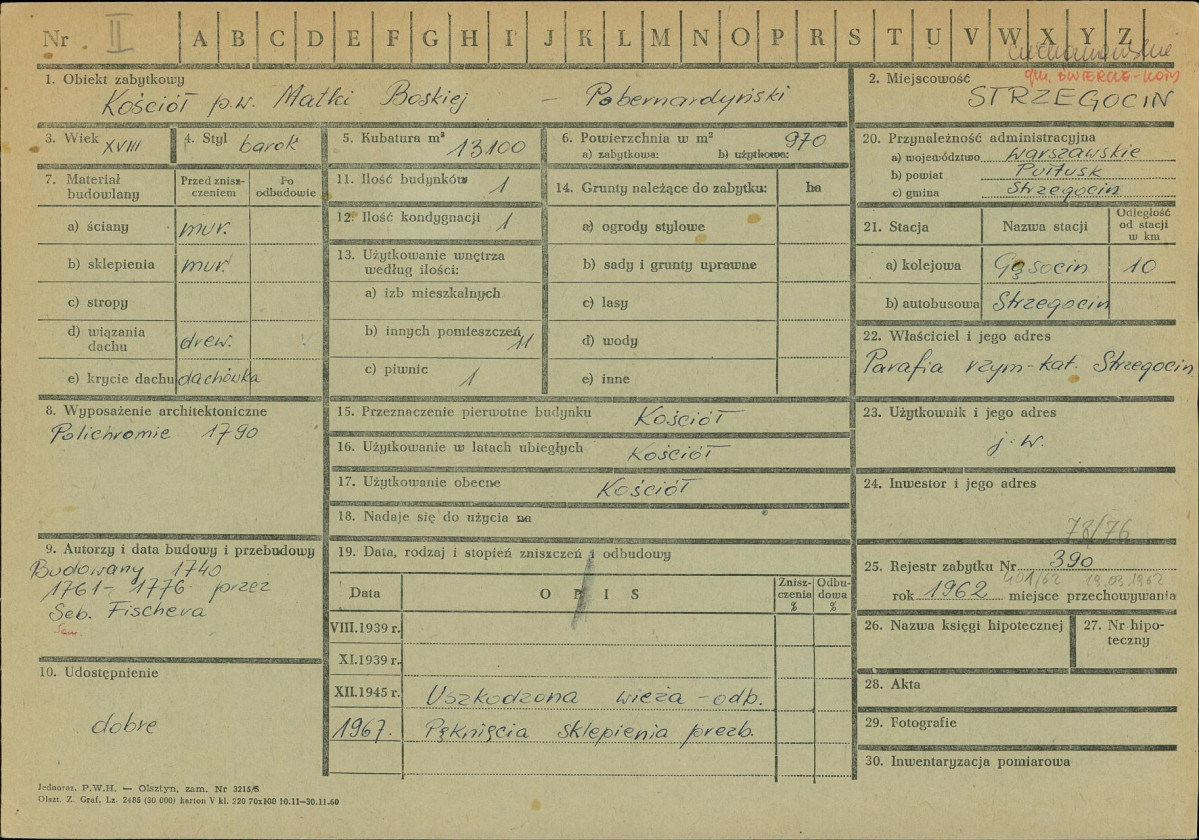 Nr II A B C D E F G H I J K L M N O P R S T U V W X Y Z
ciechanowskie
gm. ŚWIERCZE-KOTY
1. Obiekt zabytkowy
Kościół p.w. Matki Boskiej – Pobernardyński
2. Miejscowość
STRZEGOCIN
3. Wiek XVIII
4. Styl barok
5. Kubatura m³ 13100
6. Powierzchnia w m² 970
a) zabytkowa: b) użytkowa:
20. Przynależność administracyjna
a) województwo warszawskie
b) powiat Pułtusk
c) gmina Strzegocin
7. Materiał budowlany
Przed zniszczeniem
Po odbudowie
a) ściany mur.
b) sklepienia mur.
c) stropy
d) wiązania dachu drew.
e) krycie dachu dachówka
11. Ilość budynków 1
12. Ilość kondygnacji 1
13. Użytkowanie wnętrza
według ilości:
a) izb mieszkalnych
b) innych pomieszczeń 11
c) piwnic 1
14. Grunty należące do zabytku: ha
a) ogrody stylowe
b) sady i grunty uprawne
c) lasy
d) wody
e) inne
21. Stacja
Nazwa stacji
Odległość od stacji w km
a) kolejowa Gąsocin 10
b) autobusowa Strzegocin
22. Właściciel i jego adres
Parafia rzym-kat. Strzegocin
8. Wyposażenie architektoniczne
Polichromie 1790
15. Przeznaczenie pierwotne budynku Kościół
16. Użytkowanie w latach ubiegłych Kościół
17. Użytkowanie obecne Kościół
18. Nadaje się do użycia na
23. Użytkownik i jego adres
j.w.
24. Inwestor i jego adres
78/76
9. Autorzy i data budowy i przebudowy
Budowany 1740
1761–1776 przez
Seb. Fischera
19. Data, rodzaj i stopień zniszczeń i odbudowy
Data
OPIS
Zniszczenia %
Odbudowa %
VIII.1939 r.
XI.1939 r.
XII.1945 r. Uszkodzona wieża – odb.
1967. Pęknięcia sklepienia prezb.
25. Rejestr zabytku Nr 390
401/62 19.03.1962
rok 1962 miejsce przechowywania
26. Nazwa księgi hipotecznej
27. Nr hipoteczny
28. Akta
29. Fotografie
30. Inwentaryzacja pomiarowa
10. Udostępnienie
dobre
Jednoraz. P.W.H. — Olsztyn, zam. Nr 3215/S
Olszt. Z. Graf. Lz. 2485 (30 000) karton V kl. 220 70x100 10.11—30.11.60